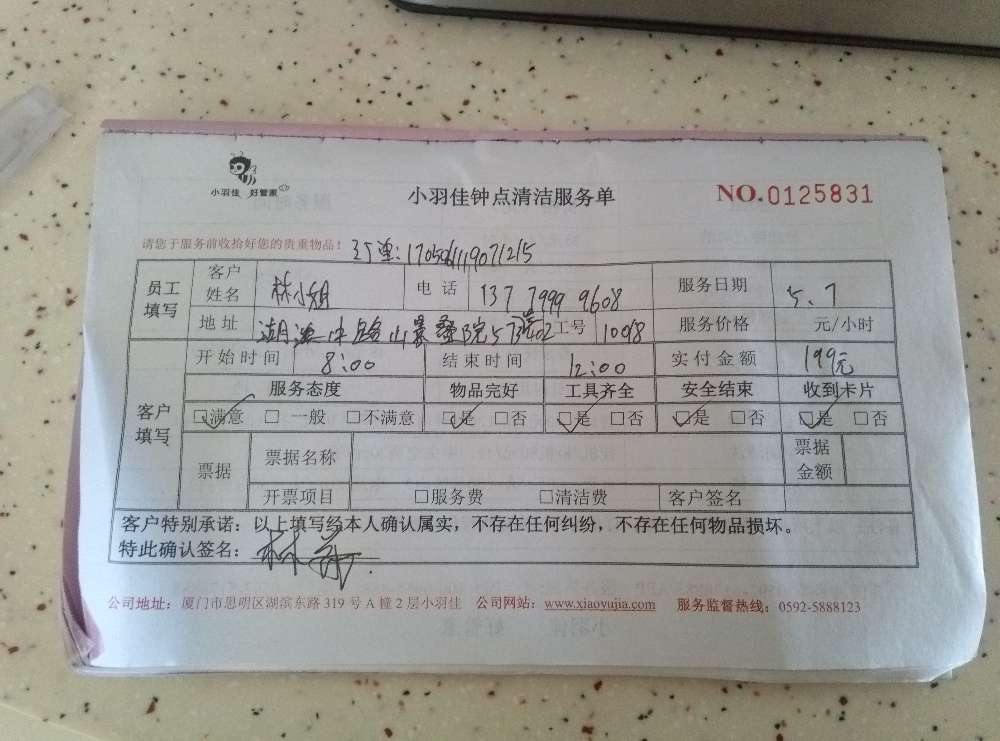 小羽佳 好管家
小羽佳钟点清洁服务单
NO.0125831
请您于服务前收拾好您的贵重物品!
员工填写 客户姓名 林小姐 电话 137 7999 9608 服务日期 5.7
地址 湖滨中路山景叠院 工号 10098 服务价格 元/小时
客户填写 开始时间 8:00 结束时间 12:00 实付金额 199元
服务态度 物品完好 工具齐全 安全结束 收到卡片
☑满意 □一般 □不满意 ☑是 □否 ☑是 □否 ☑是 □否 ☑是 □否
票据 票据名称 票据金额
开票项目 □服务费 □清洁费 客户签名
客户特别承诺:以上填写经本人确认属实,不存在任何纠纷,不存在任何物品损坏。
特此确认签名:林
公司地址:厦门市思明区湖滨东路 319 号 A 幢 2 层小羽佳 公司网站:www.xiaoyujia.com 服务监督热线:0592-5888123